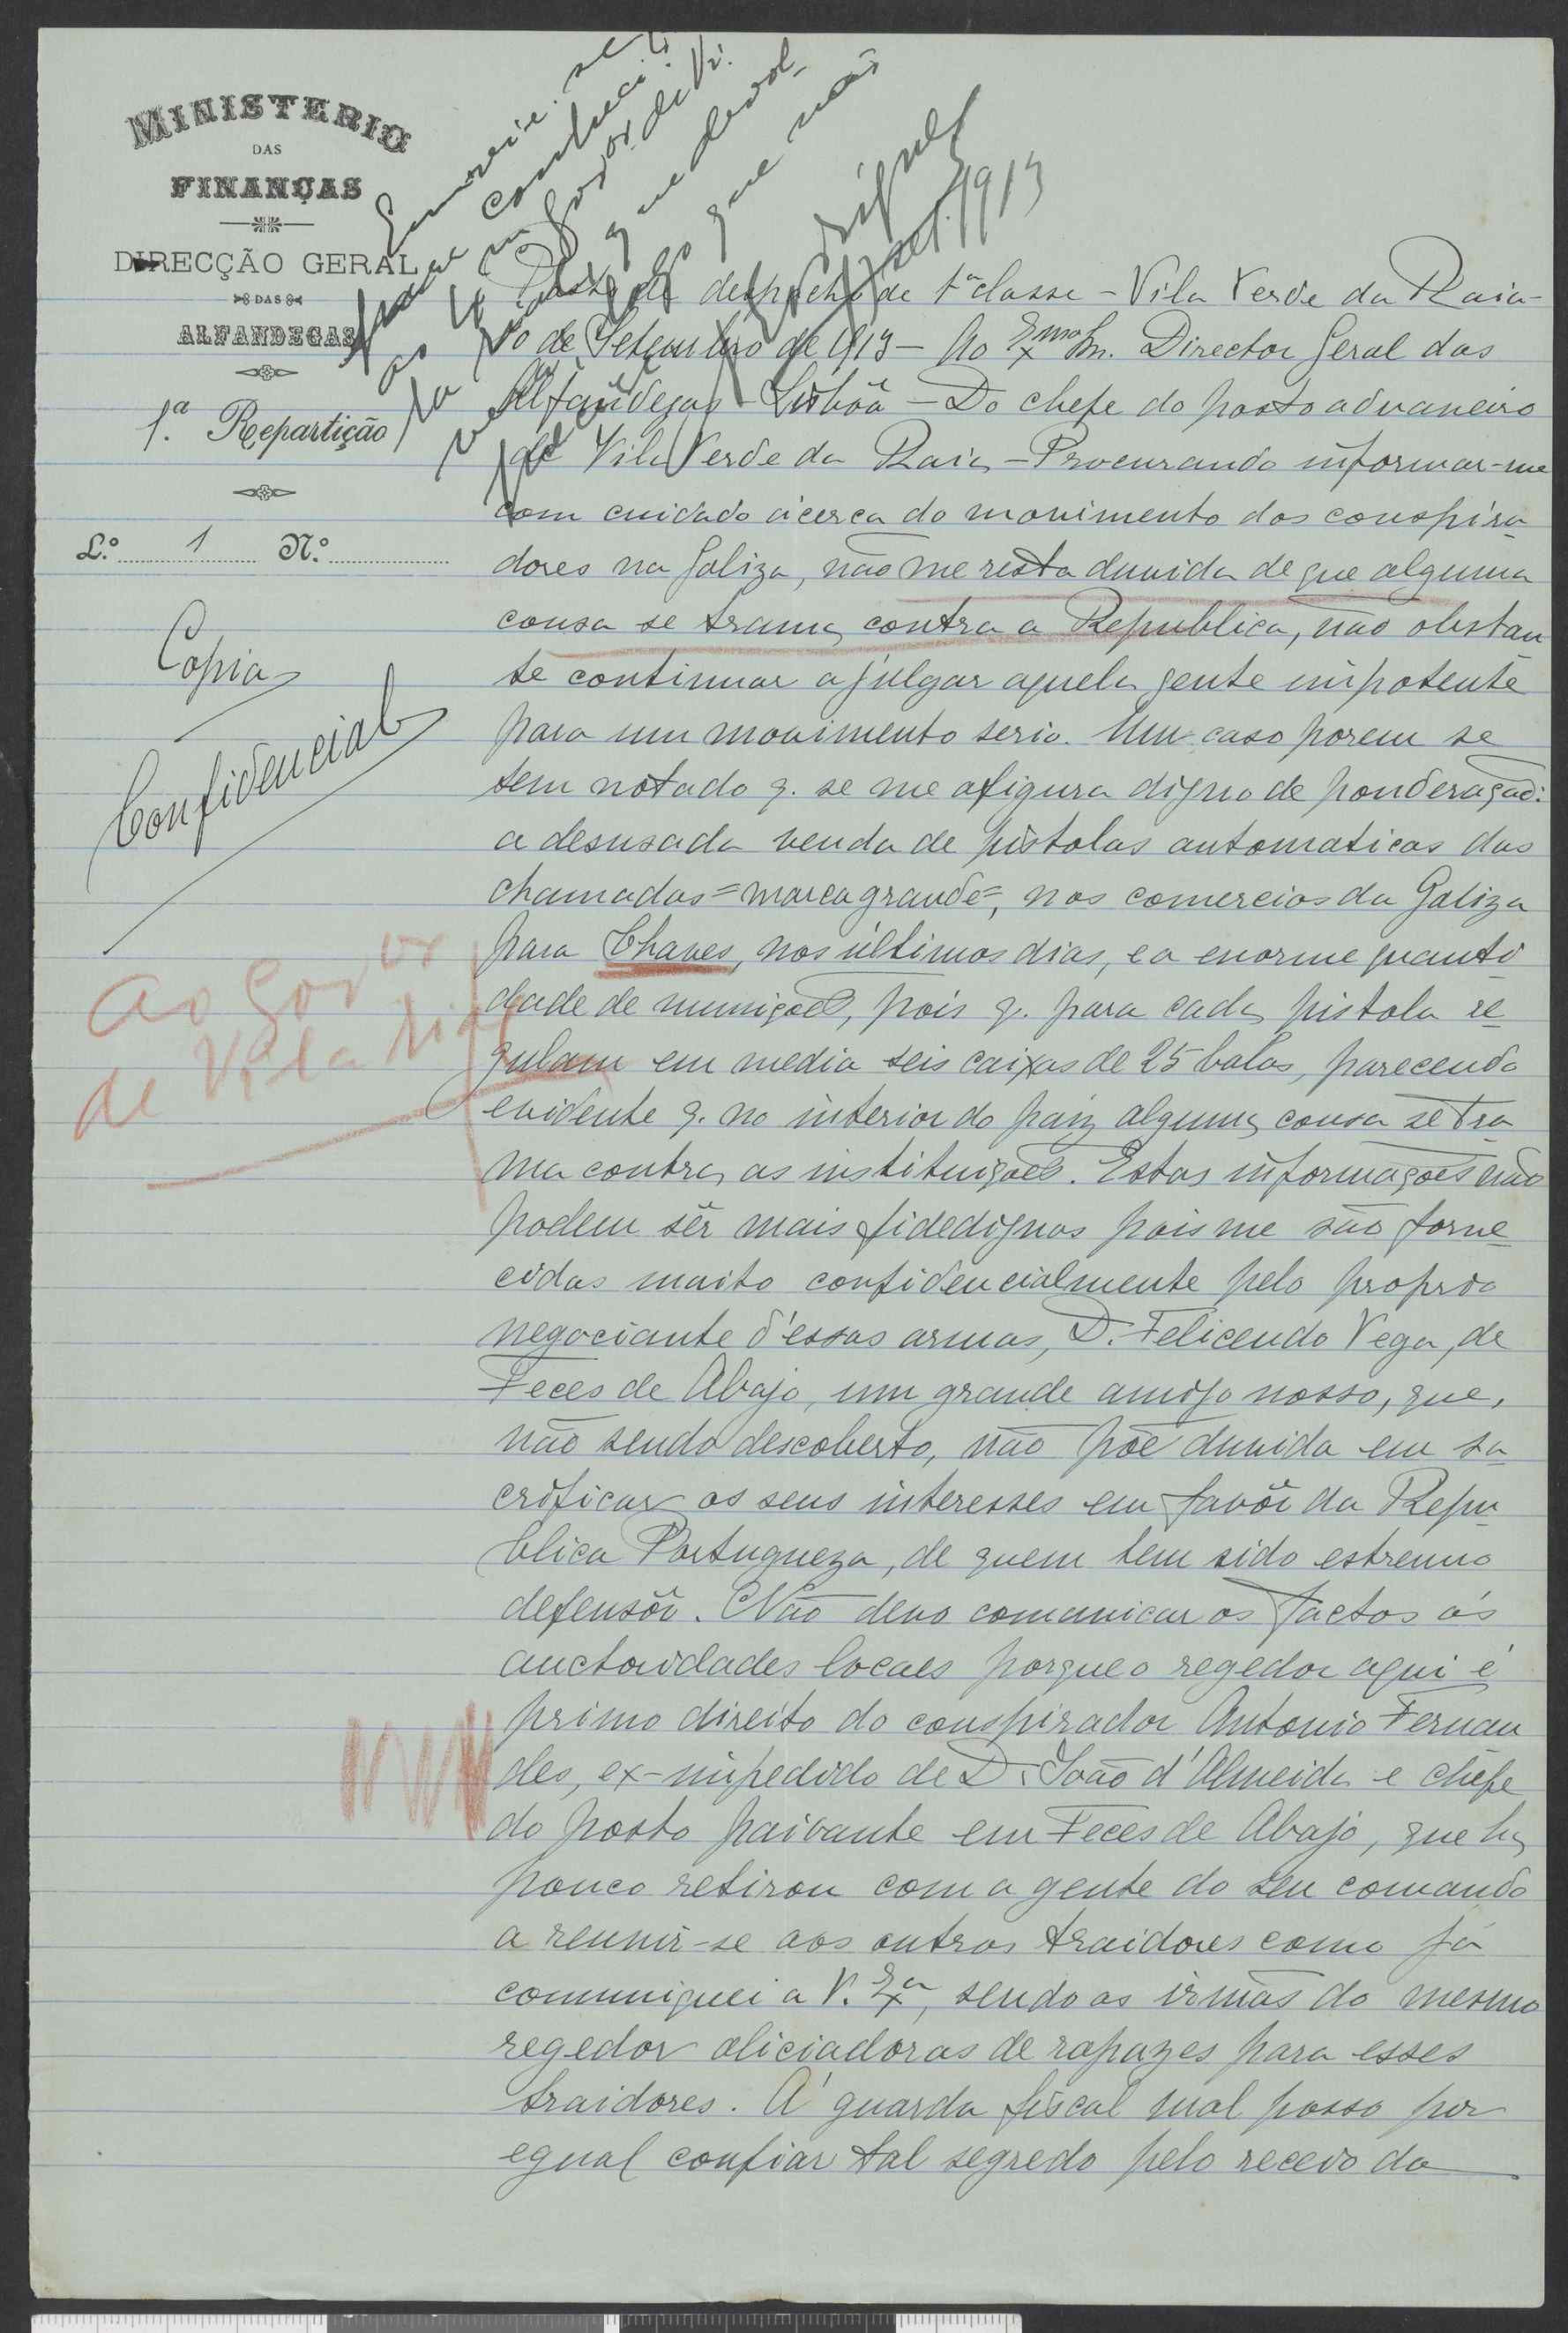 MINISTERIO
DAS
FINANÇAS
DIRECÇÃO GERAL
DAS
ALFANDEGAS
1.ª Repartição
L.º 1 N.º
Copia
Confidencial
ao Gov or
de Vila Rial
set. 1913
Posto de despacho de 1ª classe - Vila Verde da Raia -
10 de Setembro de 1913 - Ao Exmo Sn. Director Geral das
Alfandegas - Lisbôa - Do chefe do posto aduaneiro
de Vila Verde da Raia - Procurando informar-me
com cuidado ácerca do movimento dos conspira
dores na Galiza, não me resta duvida de que alguma
cousa se trama contra a Republica, não obstan
te continuar a julgar aquela gente impotente
para um movimento serio. Um caso porem se
tem notado q. se me afigura digno de ponderação:
a desusada venda de pistolas automaticas das
chamadas = marca grande =, nos comercios da Galiza
para Chaves, nos ultimos dias, e a enorme quanti
dade de munições, pois q. para cada pistola re
gulam em media seis caixas de 25 balas, parecendo
evidente q. no interior do paiz alguma cousa se tra
ma contra as instituições. Estas informações não
podem sêr mais fidedignas pois me são forne
cidas muito confidencialmente pelo proprio
negociante d'essas armas, D. Felicendo Vega, de
Feces de Abajo, um grande amigo nosso, que,
não sendo descoberto, não põe duvida em sa
crificar os seus interesses em favôr da Repu
blica Portugueza, de quem tem sido estrenuo
defensôr. Não devo comunicar os factos ás
auctoridades locaes porque o regedor aqui é
primo direito do conspirador Antonio Fernan
des, ex-impedido de D. João d'Almeida e chefe
do posto paivante em Feces de Abajo, que ha
pouco retirou com a gente do seu comando
a reunir-se aos outros traidores como já
comuniquei a V. Exa, sendo as irmãs do mesmo
regedor aliciadoras de rapazes para esses
traidores. Á guarda fiscal mal posso por
egual confiar tal segredo pelo receio da